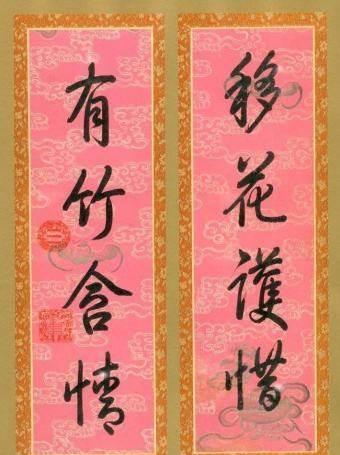 移花護惜
有竹含情